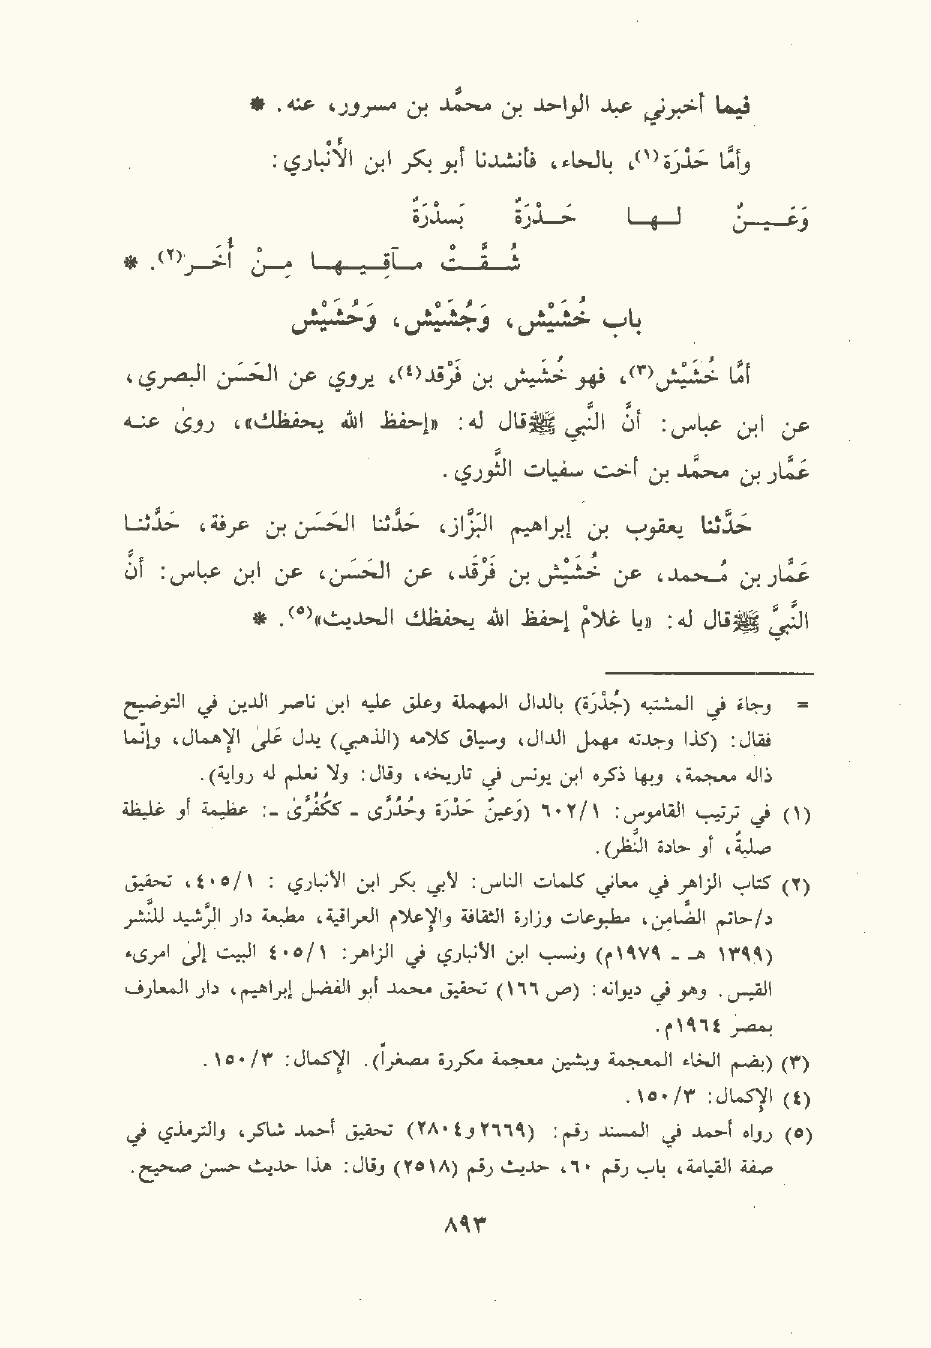 فيما أخبرني عبد الواحد بن محمَّد بن مسرور، عنه. *
وأمَّا حَدْرَة(١)، بالحاء، فأنشدنا أبو بكر ابن الأَنْبَاري:
وَعَـيـنٌ لـهـا حَـدْرَةٌ بَسدْرَةٌ
شُـقَّـتْ مآقـيـهـا مِـنْ أُخَـر(٢). *
باب خُشَيْش، وَجُشَيْش، وَحُشَيْش
أمَّا خُشَيْش(٣)، فهو خُشَيش بن فَرْقد(٤)، يروي عن الحَسَن البصري،
عن ابن عباس: أنَّ النَّبي ﷺ قال له: «إحفظ الله يحفظك»، روىٰ عنه
عَمَّار بن محمَّد بن أخت سفيان الثَّوري.
حَدَّثنا يعقوب بن إبراهيم البَزَّاز، حَدَّثنا الحَسَن بن عرفة، حَدَّثنا
عَمَّار بن مُحمد، عن خُشَيْش بن فَرْقَد، عن الحَسَن، عن ابن عباس: أنَّ
النَّبيَّ ﷺ قال له: «يا غلامُ إحفظ الله يحفظك الحديث»(٥). *
= وجاءَ في المشتبه (حُدْرَة) بالدال المهملة وعلق عليه ابن ناصر الدين في التوضيح
فقال: (كذا وجدته مهمل الدال، وسياق كلامه (الذهبي) يدل عَلىٰ الإهمال، وإنَّما
ذاله معجمة، وبها ذكره ابن يونس في تاريخه، وقال: ولا نعلم له رواية).
(١) في ترتيب القاموس: ١/ ٦٠٢ (وعينٌ حَدْرَة وحُدُرَى - ككُفُرَّى -: عظيمة أو غليظة
صلبةٌ، أو حادة النَّظر).
(٢) كتاب الزاهر في معاني كلمات الناس: لأبي بكر ابن الأنباري: ١/ ٤٠٥، تحقيق
د/حاتم الضَّامن، مطبوعات وزارة الثقافة والإعلام العراقية، مطبعة دار الرَّشيد للنَّشر
(١٣٩٩ هـ - ١٩٧٩م) ونسب ابن الأنباري في الزاهر: ١/ ٤٠٥ البيت إلىٰ امرىء
القيس. وهو في ديوانه: (ص ١٦٦) تحقيق محمد أبو الفضل إبراهيم، دار المعارف
بمصر ١٩٦٤م.
(٣) (بضم الخاء المعجمة وبشين معجمة مكررة مصغراً). الإكمال: ٣/ ١٥٠.
(٤) الإكمال: ٣/ ١٥٠.
(٥) رواه أحمد في المسند رقم: (٢٦٦٩ و٢٨٠٤) تحقيق أحمد شاكر، والترمذي في
صفة القيامة، باب رقم ٦٠، حديث رقم (٢٥١٨) وقال: هذا حديث حسن صحيح.
٨٩٣